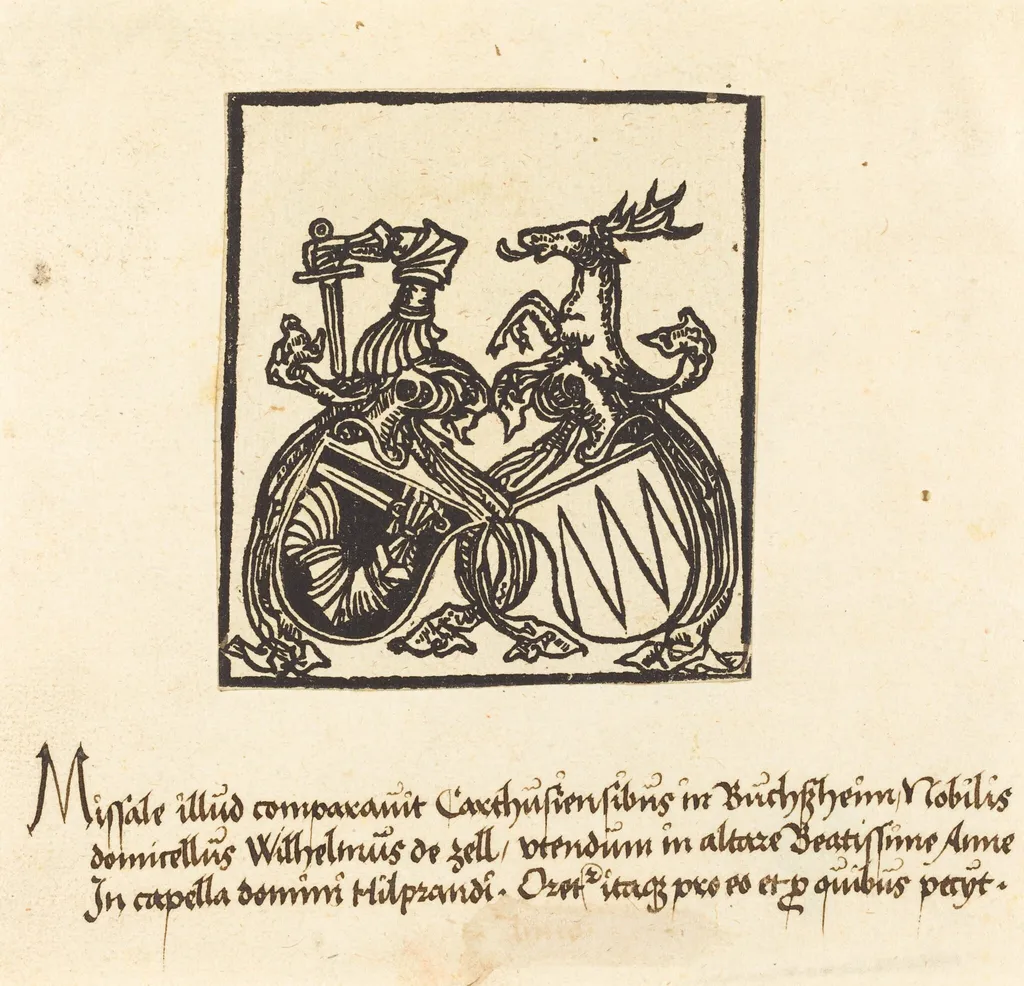 Missale illud comparauit Carthusiensibus in Buchßheim, Nobilis
domicellus Wilhelmus de zell, vtendum in altare Beatissime Anne
In capella domini Hilprandi. Oret itaqꝫ pro eo et ꝑ quibus petyt.